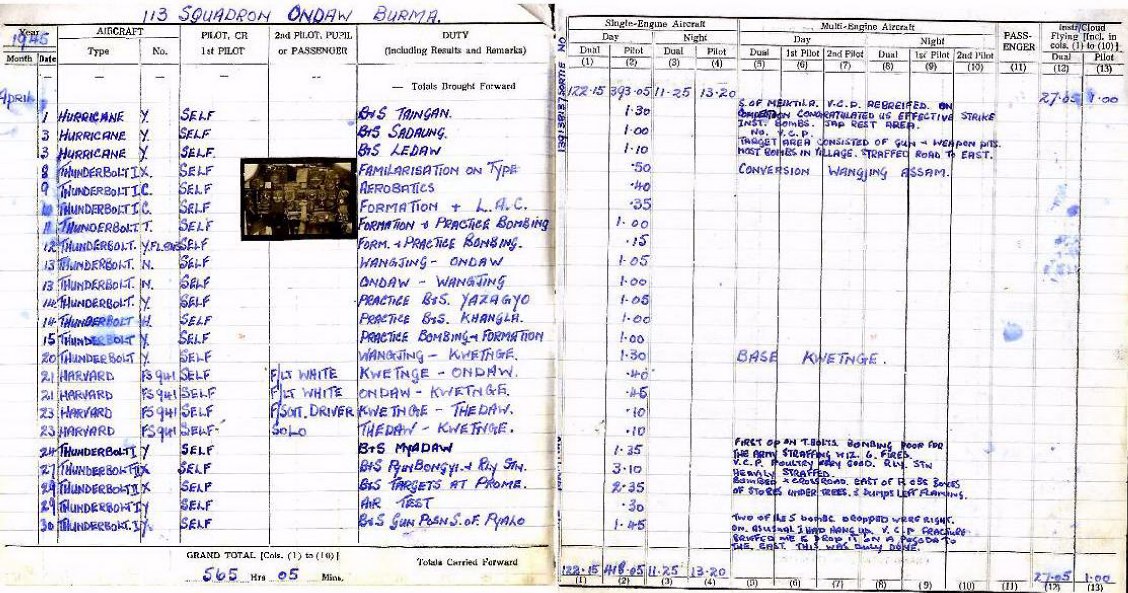 113 SQUADRON ONDAW BURMA.
Year 1945 AIRCRAFT PILOT, CR 2ND PILOT, PUPIL DUTY
Month Date Type No. 1ST PILOT OR PASSENGER (Including Results and Remarks)
— — — — — — Totals Brought Forward
April
1 HURRICANE Y. SELF B+S TAINGAN.
3 HURRICANE Y. SELF B+S SADAUNG.
3 HURRICANE Y SELF. B+S LEDAW
8 THUNDERBOLT II X. SELF FAMILARISATION ON TYPE
9 THUNDERBOLT I C. SELF AEROBATICS
10 THUNDERBOLT I C. SELF FORMATION + L.A.C.
11 THUNDERBOLT T. SELF FORMATION + PRACTICE BOMBING
12 THUNDERBOLT. SELF FORM. + PRACTICE BOMBING.
13 THUNDERBOLT. N. SELF WANGJING - ONDAW
13 THUNDERBOLT. N. SELF ONDAW - WANGJING
14 THUNDERBOLT. Y. SELF PRACTICE B+S. YAZAGYO
14 THUNDERBOLT H. SELF PRACTICE B+S. KHANGLA.
15 THUNDERBOLT Y. SELF PRACTICE BOMBING + FORMATION
20 THUNDERBOLT Y. SELF WANGJING - KWETNGE.
21 HARVARD FS 941 SELF F/LT WHITE KWETNGE - ONDAW.
21 HARVARD FS 941 SELF F/LT WHITE ONDAW - KWETNGE.
23 HARVARD FS 941 SELF F/SGT. DRIVER KWETNGE - THEDAW.
23 HARVARD FS 941 SELF SOLO THEDAW - KWETNGE.
24 THUNDERBOLT II Y SELF B+S MYADAW
27 THUNDERBOLT II X SELF B+S PYINBONGYI + RLY STN.
29 THUNDERBOLT II X SELF B+S TARGETS AT PROME.
29 THUNDERBOLT II Y SELF AIR TEST
30 THUNDERBOLT II Y. SELF B+S GUN POSNS. OF PYALO
GRAND TOTAL [Cols. (1) to (10)]
565 Hrs 05 Mins.
Totals Carried Forward
SORTIE NO
Single-Engine Aircraft Multi-Engine Aircraft PASS-ENGER Instr/Cloud Flying [Incl. in cols. (1) to (10)]
Day Night Day Night
Dual Pilot Dual Pilot Dual 1st Pilot 2nd Pilot Dual 1st Pilot 2nd Pilot Dual Pilot
(1) (2) (3) (4) (5) (6) (7) (8) (9) (10) (11) (12) (13)
122.15 393.05 11.25 13.20 27.05 1.00
1.30 S. OF MEIKTILA. V.C.P. REBREIFED. ON
COMPLETION CONGRATULATED US EFFECTIVE STRIKE
1.00 INST. BOMBS. JAP REST AREA.
NO. V.C.P.
1.10 TARGET AREA CONSISTED OF GUN + WEAPON PITS.
MOST BOMBS IN VILLAGE. STRAFFED ROAD TO EAST.
.50 CONVERSION WANGJING ASSAM.
.40
.35
1.00
.15
1.05
1.00
1.05
1.00
1.00
1.30 BASE KWETNGE.
.40
.45
.10
.10
1.35 FIRST OP ON T.BOLTS. BOMBING POOR FOR
THE ARMY STRAFFING WIZ. G. FIRED.
3.10 V.C.P. POULTRY VERY GOOD. RLY. STN
HEAVILY STRAFFED.
2.35 BOMBED X CROSSROAD. EAST OF R
OF STORES UNDER TREES. 3 DUMPS LEFT FLAMING.
.30
1.45 TWO OF THE 5 BOMBS DROPPED WERE RIGHT
ON. AS USUAL I HAD HANG UP. V.C.P FRACTURE
BRIEFED ME TO DROP IT ON A PAGODA TO
THE EAST. THIS WAS DULY DONE.
122.15 418.05 11.25 13.20 27.05 1.00
(1) (2) (3) (4) (5) (6) (7) (8) (9) (10) (11) (12) (13)